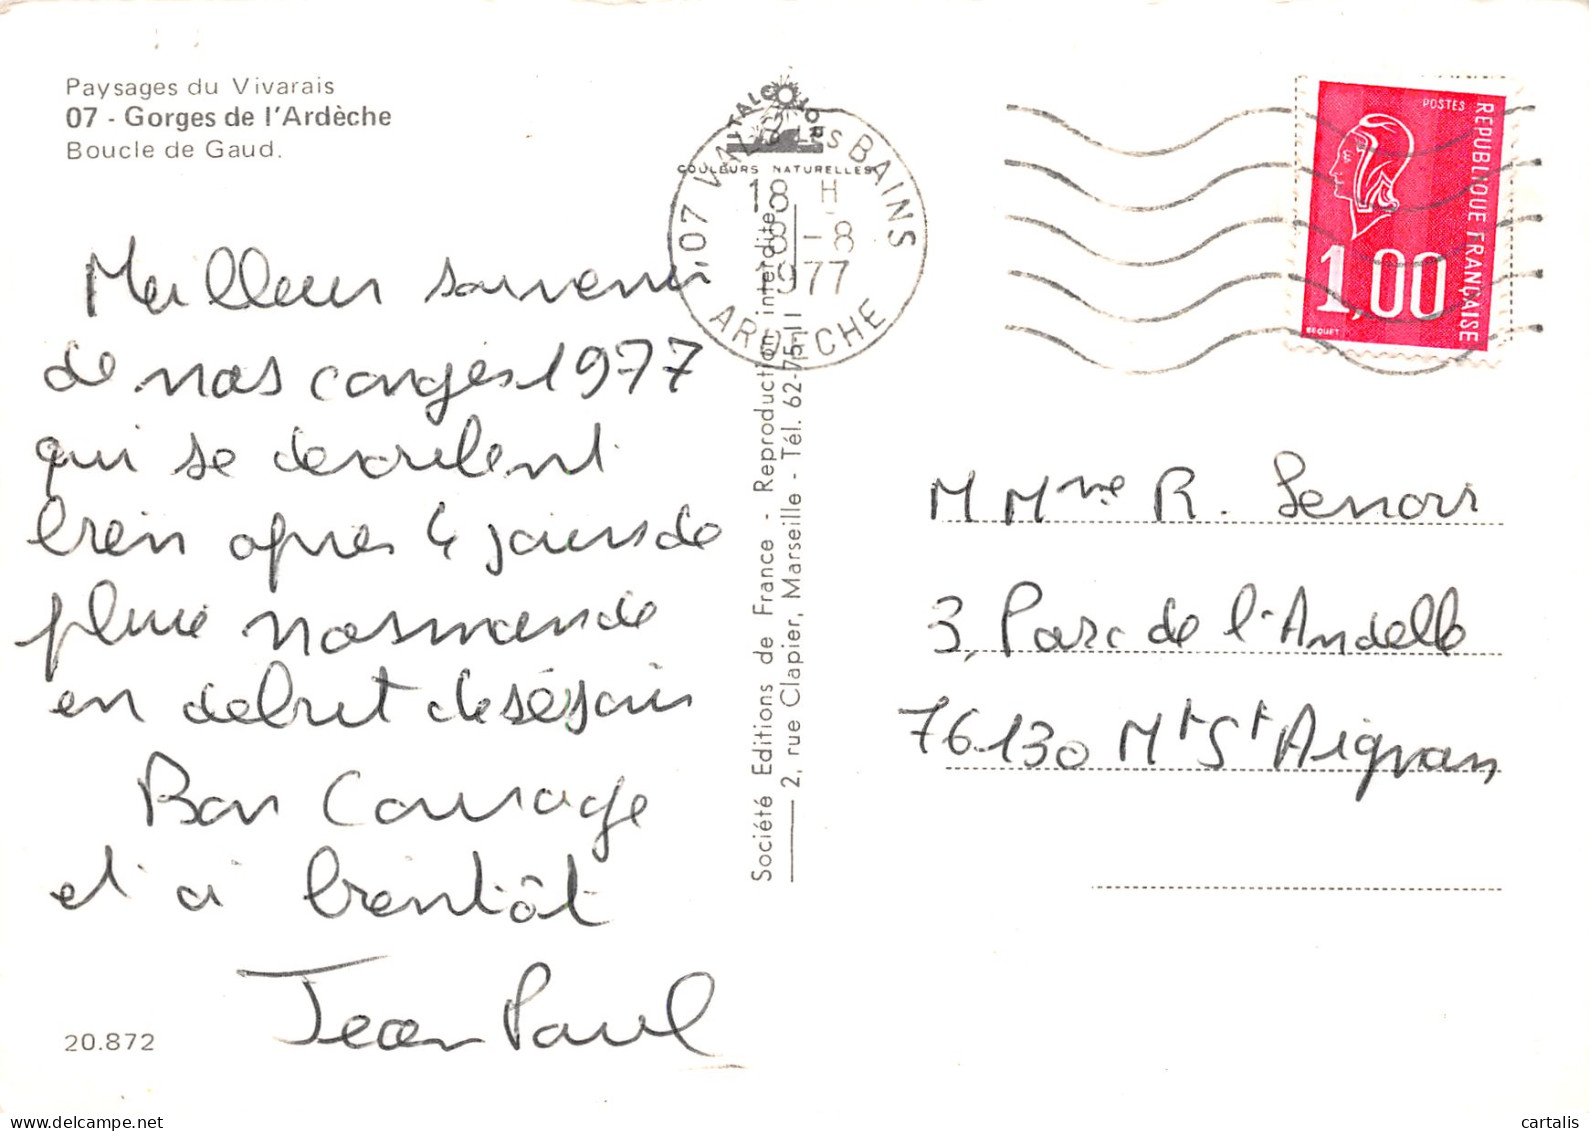 Paysages du Vivarais
07 - Gorges de l'Ardèche
Boucle de Gaud.
Meilleur souvenir
de nos congés 1977
qui se deroulent
bien après 4 jours de
pluie normande
en debut de séjour
Bon Courage
et à bientôt
Jean Paul
20.872
ITALCOLOR
COULEURS NATURELLES
07 VALS LES BAINS
18 H
8 - 8
1977
ARDECHE
Société Editions de France - Reproduction interdite
2, rue Clapier, Marseille - Tél. 62-75-11
POSTES
REPUBLIQUE FRANÇAISE
1,00
BEQUET
M Mme R. Lenoir
3, Parc de l'Andelle
76.130 Mt St Aignan
delcampe.net
cartalis